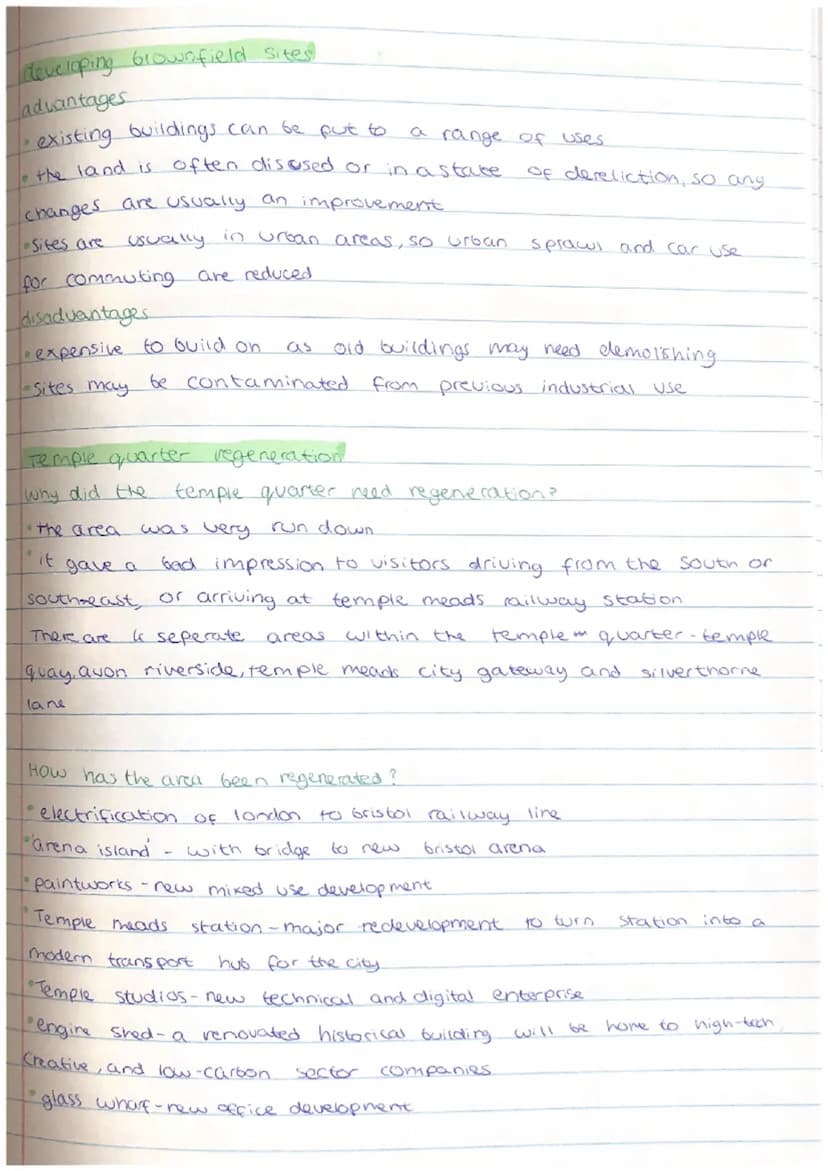 developing brownfield sites
advantages
• existing buildings can be put to a range of uses
• the land is often disused or in a state of dereliction, so any
changes are usually an improvement
• Sites are usually in urban areas, so urban sprawl and car use
for commuting are reduced
disadvantages
• expensive to build on as old buildings may need demolishing
• Sites may be contaminated from previous industrial use
Temple quarter regeneration
Why did the temple quarter need regeneration?
• the area was very run down
• it gave a bad impression to visitors driving from the south or
southeast, or arriving at temple meads railway station
There are 4 seperate areas within the temple quarter - temple
quay, avon riverside, temple meads city gateway and silverthorne
lane
How has the area been regenerated?
• electrification of london to bristol railway line
• 'arena island' - with bridge to new bristol arena
• paintworks - new mixed use development
• Temple meads station - major redevelopment to turn station into a
modern transport hub for the city
• Temple studios - new technical and digital enterprise
• engine shed - a renovated historical building will be home to high-tech,
creative, and low-carbon sector companies
• glass wharf - new office development